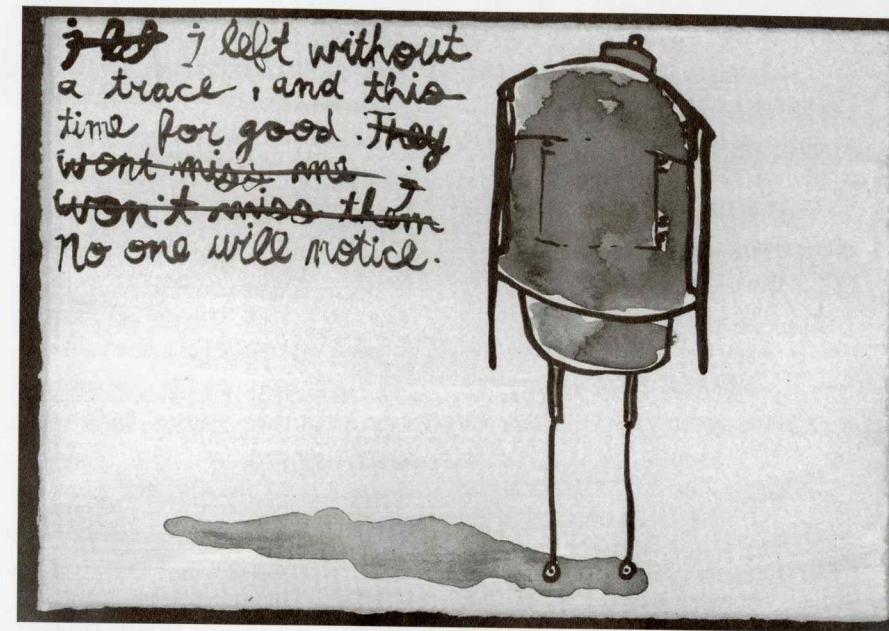 j left without
a trace, and this
time for good. They
wont miss me j
won't miss them
No one will notice.